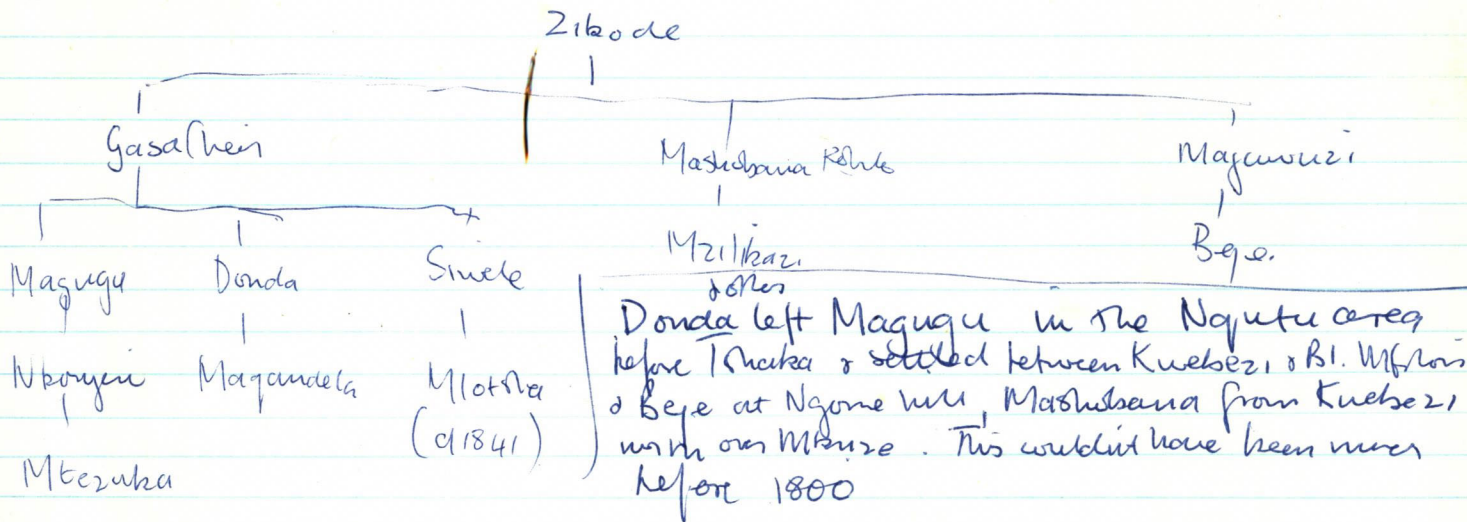 Zikode
Gasa (heir Mashobana Kohlo Magawuzi
Magugu Donda Sinele Mzilikazi Beje.
& others
Nkonyeni Maqandela Mlotsha
(d 1841)
Mtezuka
Donda left Magugu in the Nqutu area
before Tshaka & settled between Kwebezi & Bl. Mfolozi
& Beje at Ngome hill, Mashobana from Kwebezi
north over Mkuze. This couldn't have been much
before 1800